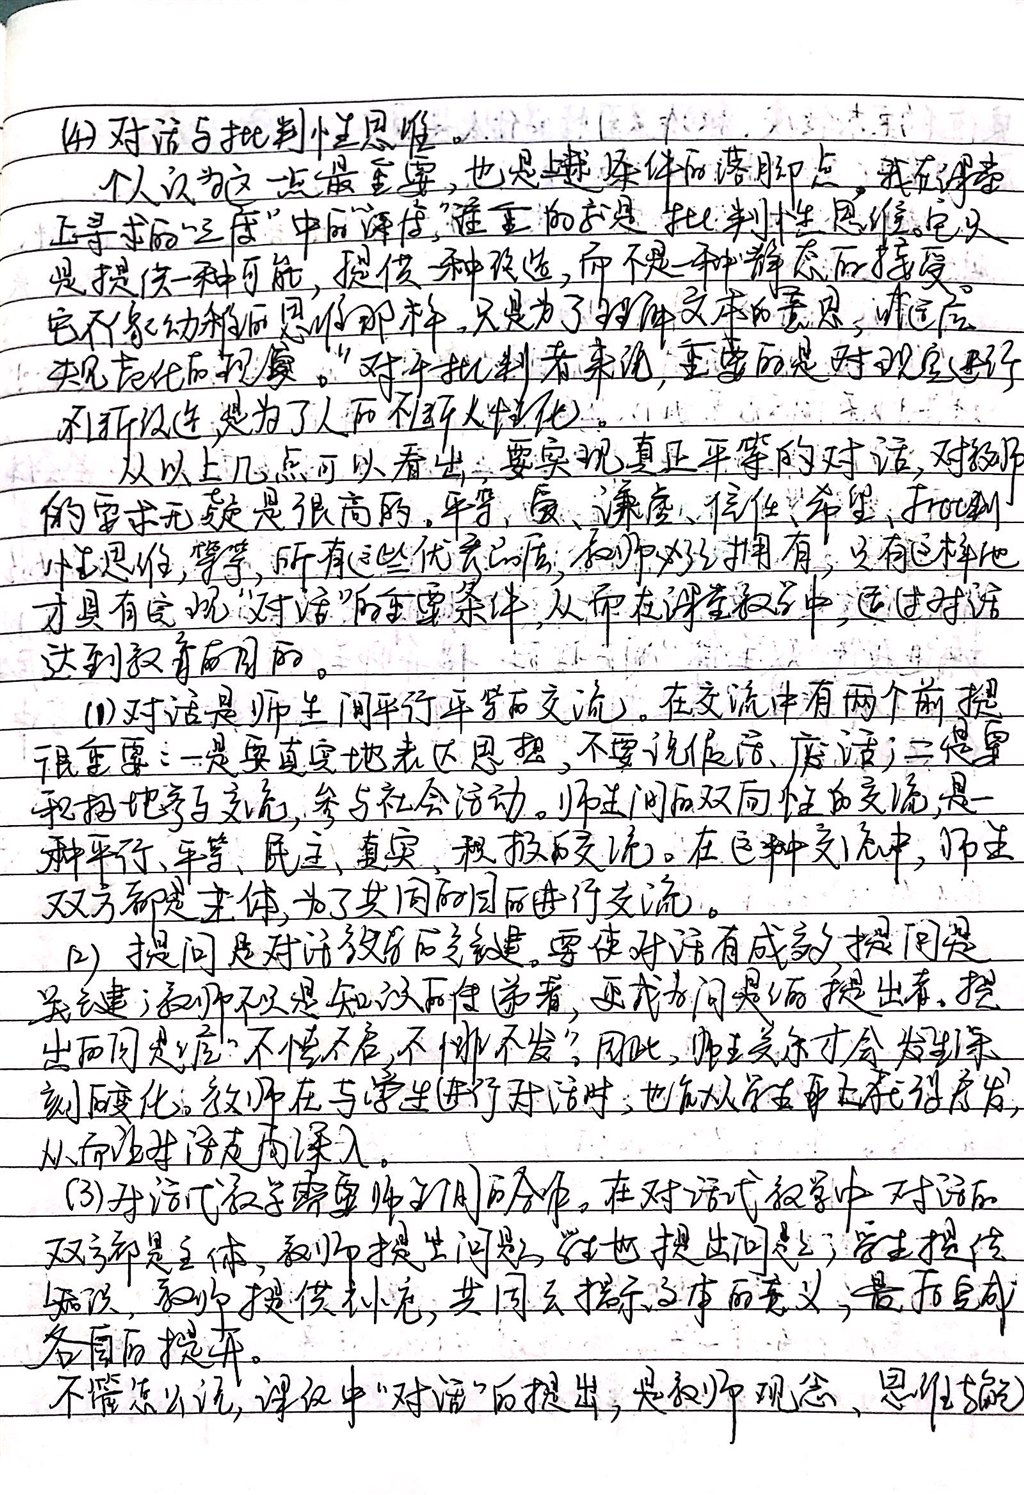 (4) 对话与批判性思维。
个人认为这一点最重要，也是上述条件的落脚点。我在课堂
上寻求的“三度”中的“深度”，准主的就是批判性思维。它只
是提供一种可能，提供一种改造，而不是一种“静态的接受。
它不像幼稚的思维那样，只是为了理解文本的意思，
规范化的现实。”对于批判者来说，重要的是对现实进行
不断改造，是为了人的不断人性化。
从以上几点可以看出，要实现真正平等的对话，对教师
的要求无疑是很高的。平等、爱、谦虚、信任、希望、批判
性思维，等等，所有这些优秀品质，教师必须拥有，只有这样他
才具有实现“对话”的重要条件，从而在课堂教学中，通过对话
达到教育的目的。
(1) 对话是师生间平行平等的交流。在交流中有两个前提
很重要：一是要真实地表达思想，不要说假话、废话；二是要
积极地参与交流，参与社会活动。师生间的双向性的交流，是一
种平行、平等、民主、真实、积极的交流。在这种交流中，师生
双方都是主体，为了共同的目的进行交流。
(2) 提问是对话教学的关键。要使对话有成效，提问是
关键；教师不仅是知识的传递者，更成为问题的提出者。提
出的问题应“不愤不启，不悱不发”，因此，师生关系才会发生深
刻的变化。教师在与学生进行对话时，也能从学生那获得启发，
从而让对话走向深入。
(3) 对话式教学需要师生间的合作。在对话式教学中对话的
双方都是主体，教师提出问题，学生也提出问题；学生提供
知识，教师提供补充，共同去揭示文本的意义，最后完成
各自的提升。
不管怎么说，课改中“对话”的提出，是教师观念、思维